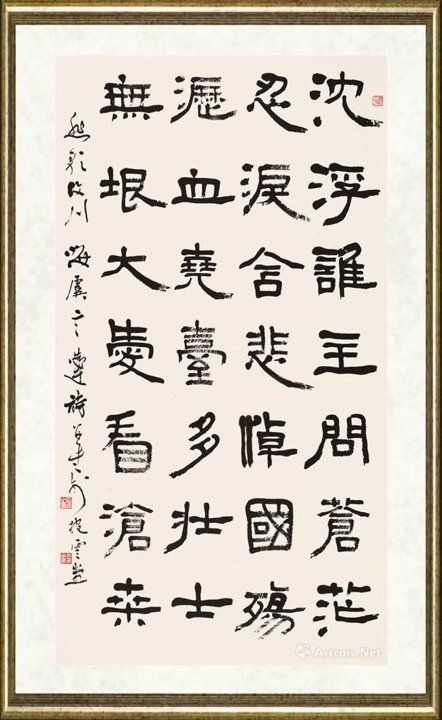 沈浮誰主問蒼茫
忍淚含悲悼國殤
瀝血堯臺多壯士
無垠大愛看滄桒
汶川
Artron.Net